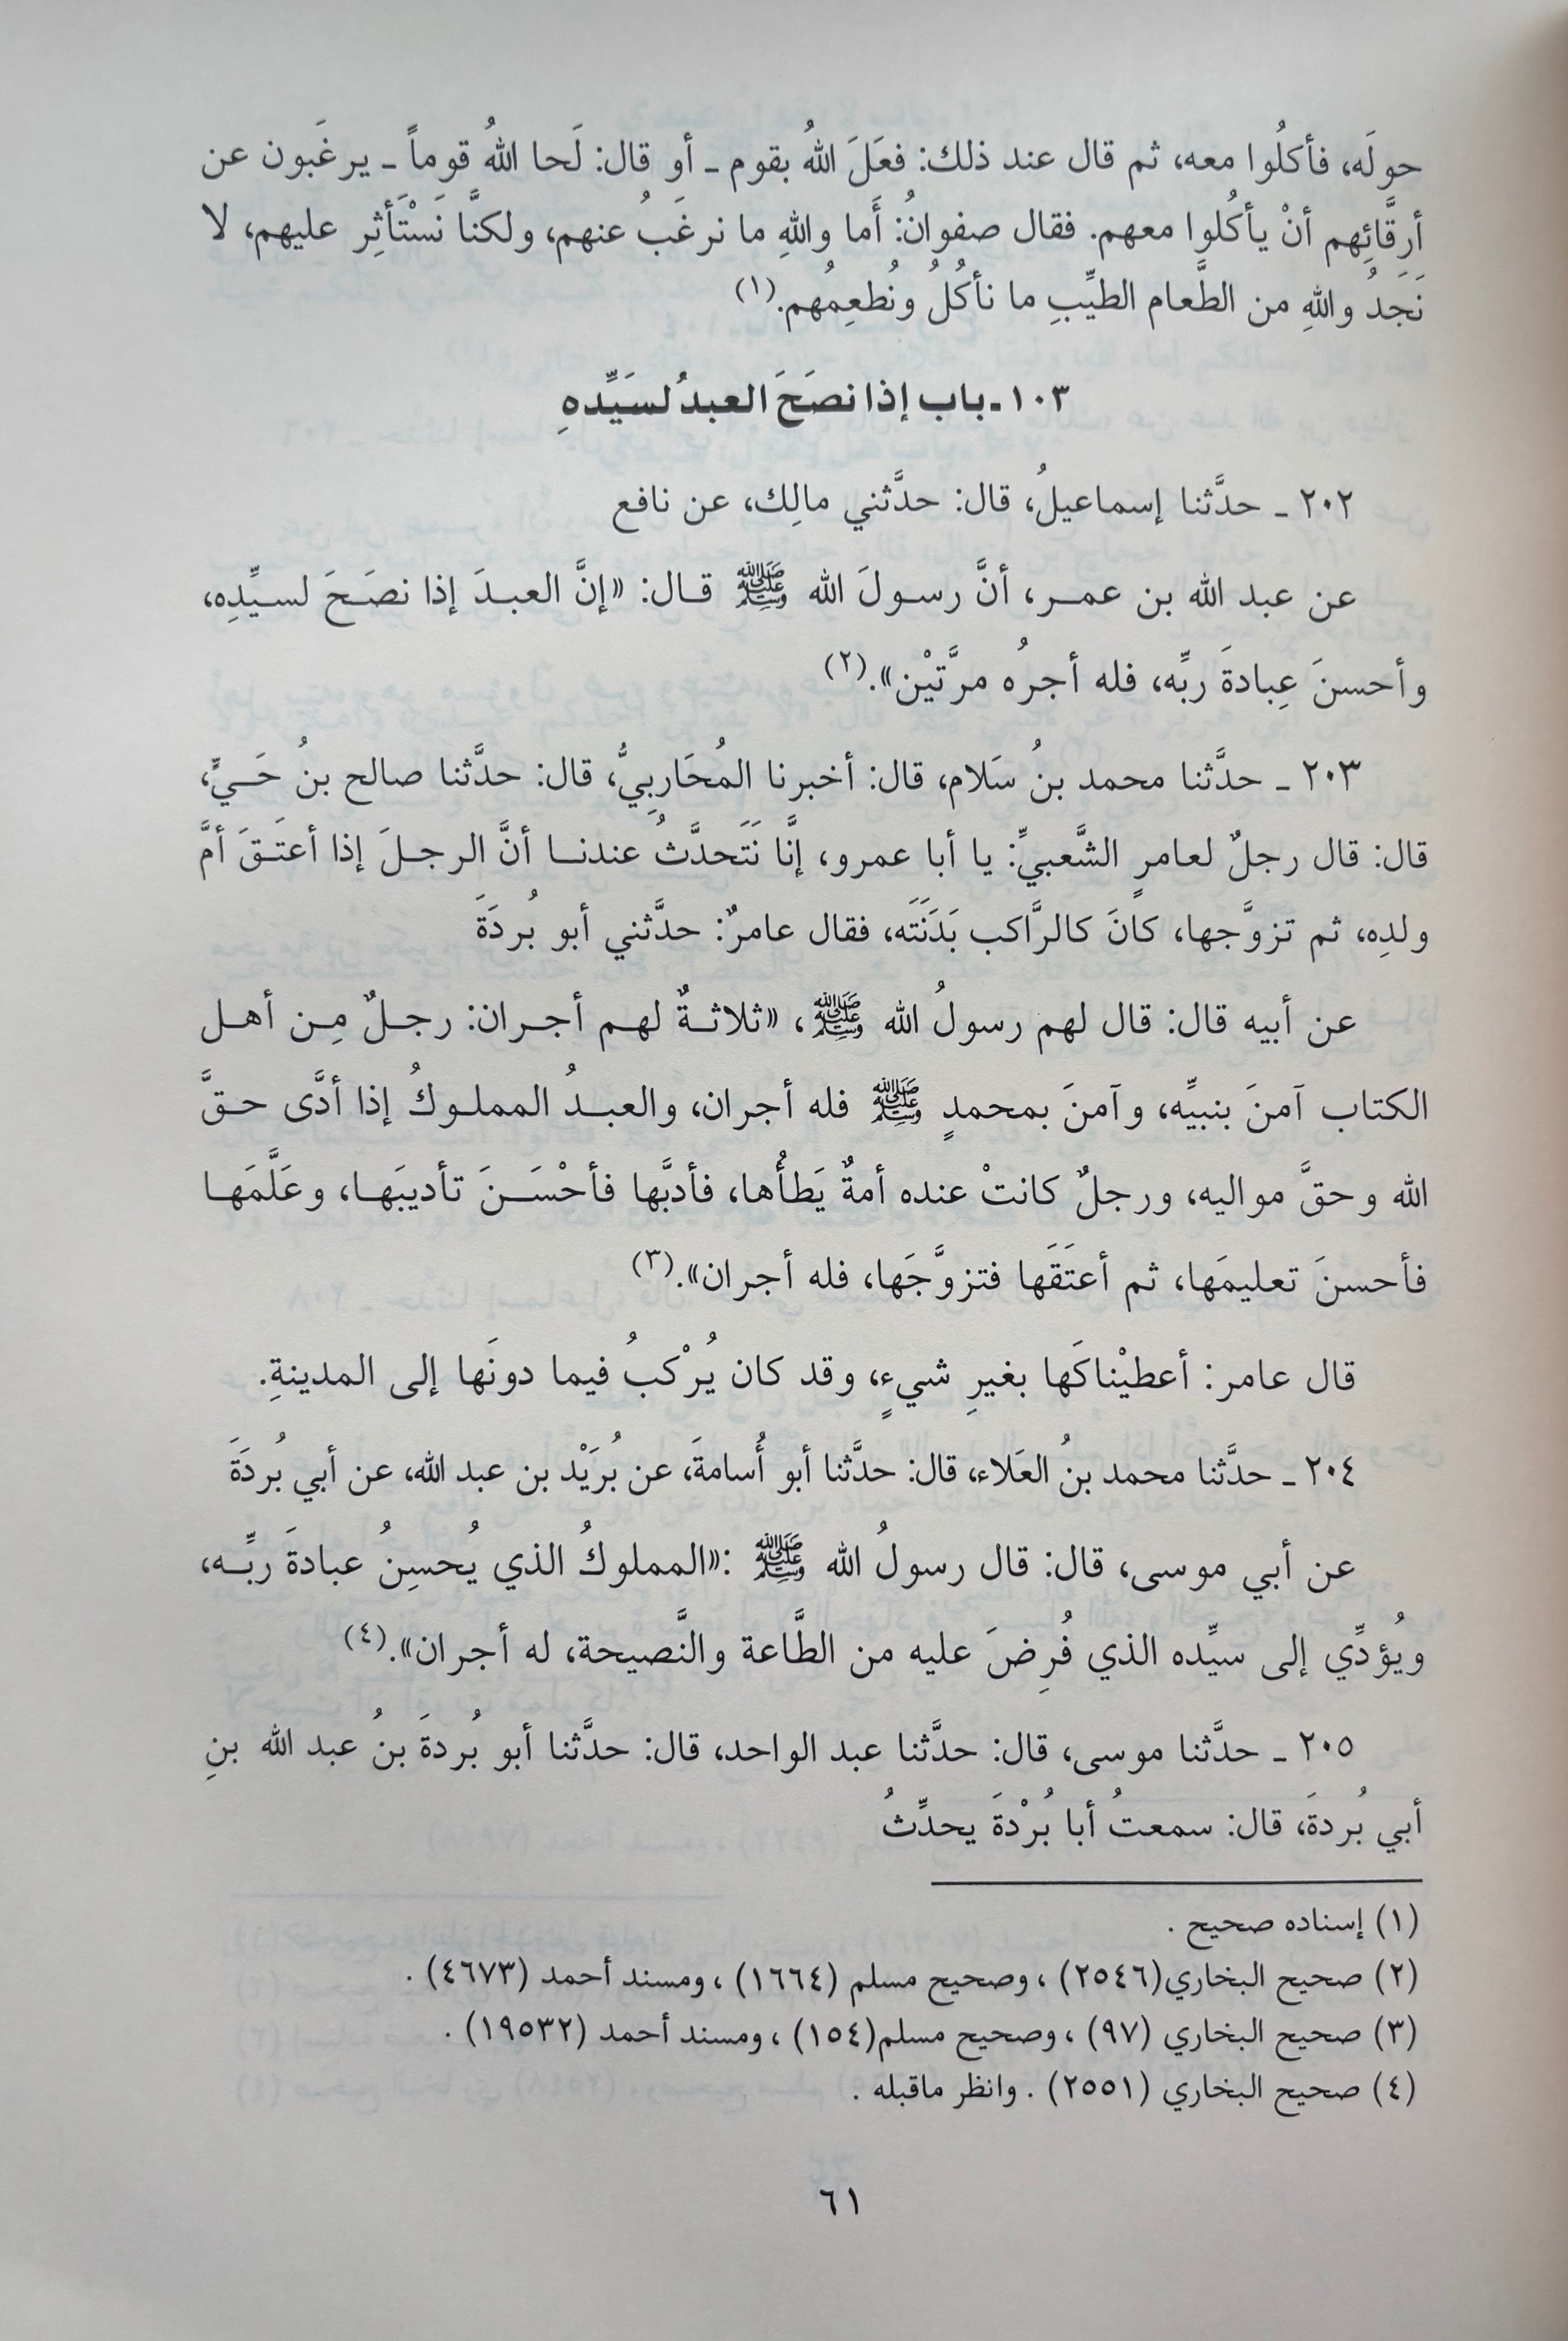 حولَه، فأكلُوا معه، ثم قال عند ذلك: فعَلَ اللهُ بقوم ـ أو قال: لَحا اللهُ قوماً ـ يرغَبون عن
أرِقَّائِهم أنْ يأكُلوا معهم. فقال صفوانُ: أَما واللهِ ما نرغَبُ عنهم، ولكنَّا نَسْتَأثِر عليهم، لا
نَجَدُ واللهِ من الطَّعام الطيِّبِ ما نأكُلُ ونُطعِمُهم.(١)
١٠٣ ـ باب إذا نصَحَ العبدُ لسَيِّدهِ
٢٠٢ ـ حدَّثنا إسماعيلُ، قال: حدَّثني مالِك، عن نافع
عن عبد الله بن عمر، أنَّ رسولَ الله ﷺ قال: «إنَّ العبدَ إذا نصَحَ لسيِّدِه،
وأحسنَ عِبادةَ ربِّه، فله أجرُه مرَّتيْن».(٢)
٢٠٣ ـ حدَّثنا محمد بنُ سَلام، قال: أخبرنا المُحَاربِيُّ، قال: حدَّثنا صالح بنُ حَيٍّ،
قال: قال رجلٌ لعامرٍ الشَّعبيِّ: يا أبا عمرو، إنَّا نَتَحدَّثُ عندنا أنَّ الرجلَ إذا أعتَقَ أمَّ
ولدِه، ثم تزوَّجها، كانَ كالرَّاكب بَدَنَتَه، فقال عامرٌ: حدَّثني أبو بُردَةَ
عن أبيه قال: قال لهم رسولُ الله ﷺ، «ثلاثةٌ لهم أجران: رجلٌ مِن أهل
الكتاب آمنَ بنبيِّه، وآمنَ بمحمدٍ ﷺ فله أجران، والعبدُ المملوكُ إذا أدَّى حقَّ
الله وحقَّ مواليه، ورجلٌ كانتْ عنده أمةٌ يَطأُها، فأدبَّها فأحْسَنَ تأديبَها، وعَلَّمَها
فأحسنَ تعليمَها، ثم أعتَقَها فتزوَّجَها، فله أجران».(٣)
قال عامر: أعطيْناكَها بغيرِ شيءٍ، وقد كان يُرْكبُ فيما دونَها إلى المدينةِ.
٢٠٤ ـ حدَّثنا محمد بنُ العَلاء، قال: حدَّثنا أبو أُسامةَ، عن بُرَيْد بن عبد الله، عن أبي بُردَةَ
عن أبي موسى، قال: قال رسولُ الله ﷺ :«المملوكُ الذي يُحسِنُ عبادةَ ربِّه،
ويُؤدِّي إلى سيِّده الذي فُرِضَ عليه من الطَّاعة والنَّصيحة، له أجران».(٤)
٢٠٥ ـ حدَّثنا موسى، قال: حدَّثنا عبد الواحد، قال: حدَّثنا أبو بُردةَ بنُ عبد الله بنِ
أبي بُردةَ، قال: سمعتُ أبا بُرْدةَ يحدِّثُ
(١) إسناده صحيح .
(٢) صحيح البخاري(٢٥٤٦) ، وصحيح مسلم (١٦٦٤) ، ومسند أحمد (٤٦٧٣) .
(٣) صحيح البخاري (٩٧) ، وصحيح مسلم(١٥٤) ، ومسند أحمد (١٩٥٣٢) .
(٤) صحيح البخاري (٢٥٥١) . وانظر ماقبله .
٦١